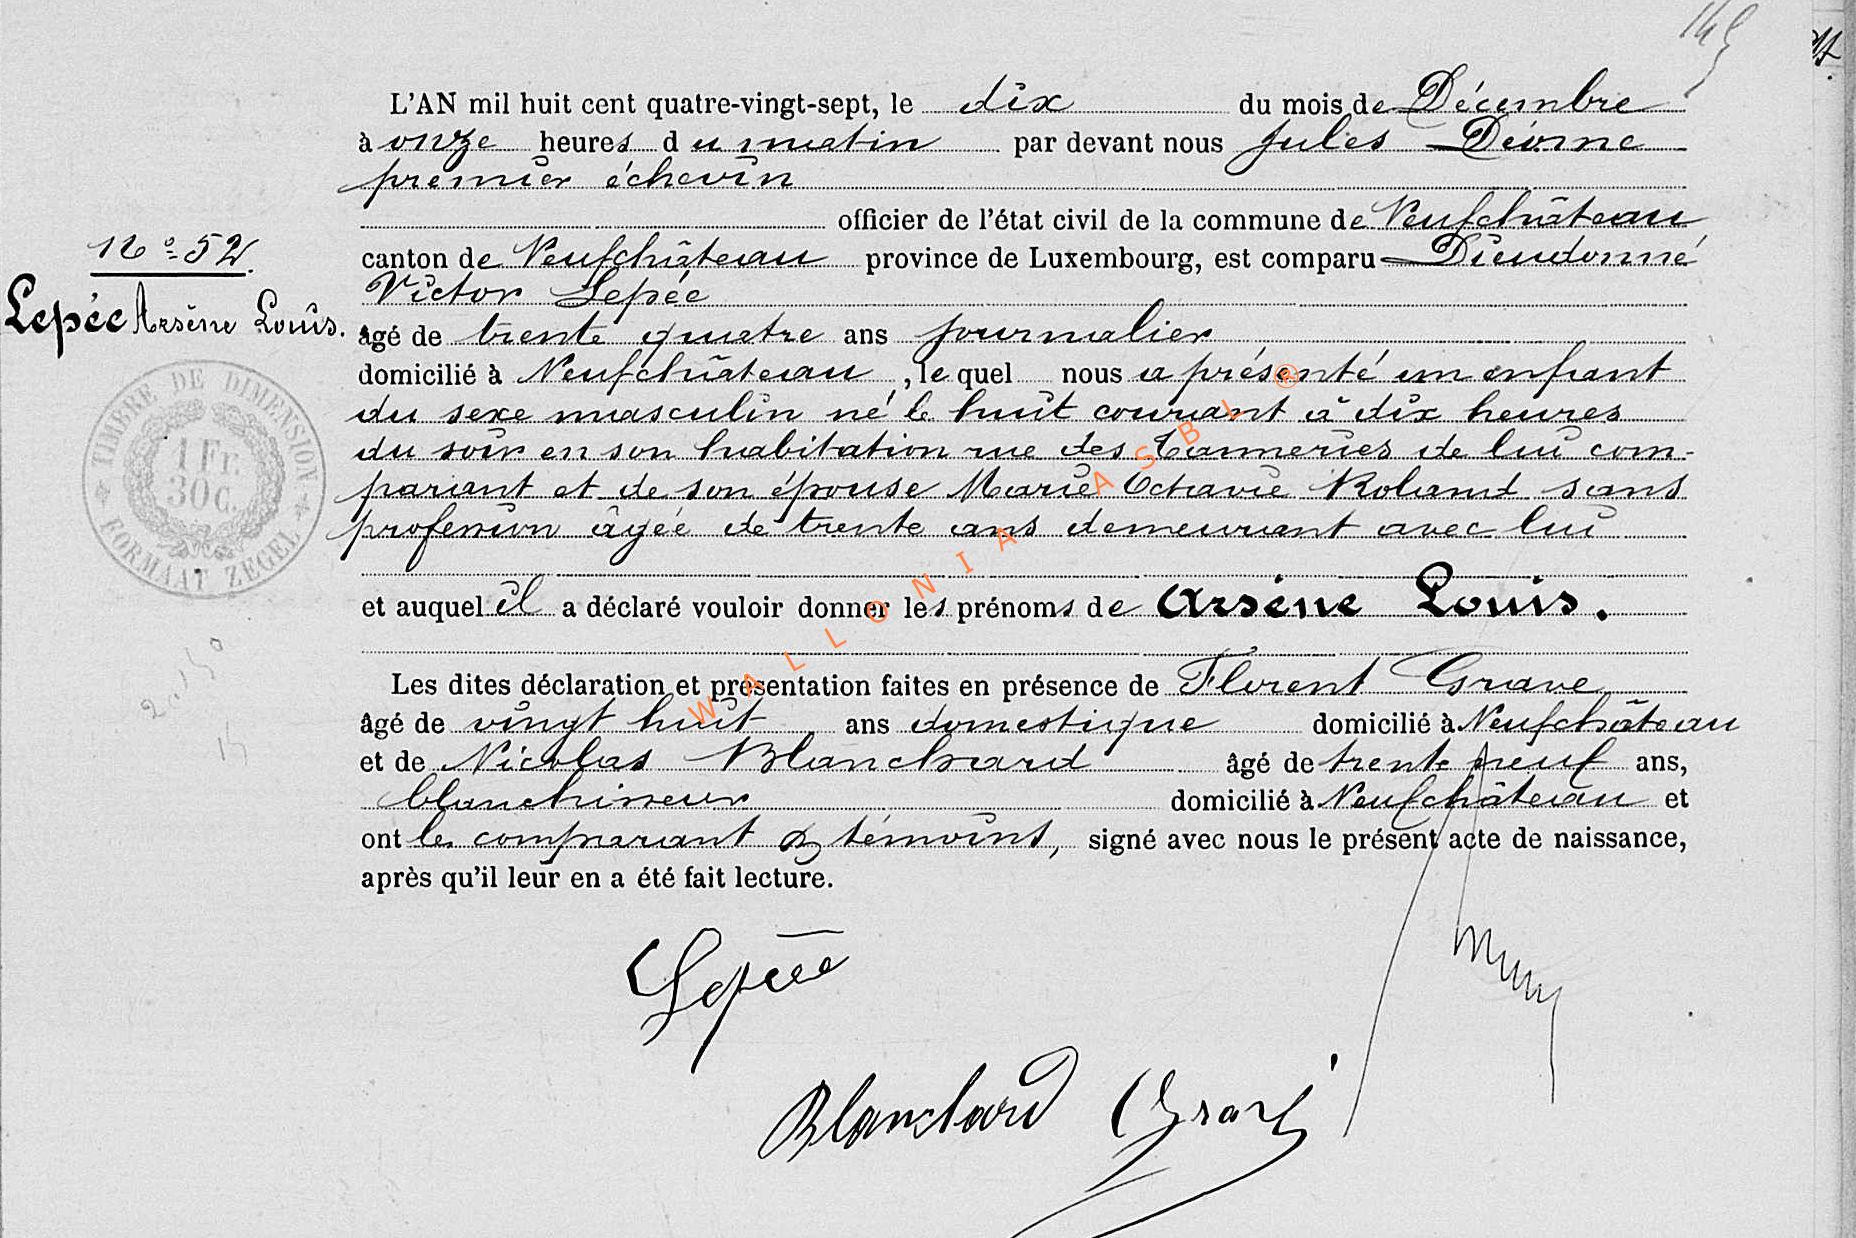 145
L'AN mil huit cent quatre-vingt-sept, le dix du mois de Décembre
à onze heures du matin par devant nous Jules
premier échevin
officier de l'état civil de la commune de Neufchâteau
canton de Neufchâteau province de Luxembourg, est comparu Dieudonné
Victor Lepée
âgé de trente quatre ans journalier
domicilié à Neufchâteau, lequel nous a présenté un enfant
du sexe masculin né le huit courant à dix heures
du soir en son habitation rue des Tanneries de lui com-
parant et de son épouse Marie Octavie Roland sans
profession âgée de trente ans demeurant avec lui
et auquel il a déclaré vouloir donner les prénoms de Arsène Louis.
Les dites déclaration et présentation faites en présence de Florent Grave
âgé de vingt huit ans domestique domicilié à Neufchâteau
et de Nicolas Blanchard âgé de trente neuf ans,
blanchisseur domicilié à Neufchâteau et
ont les comparant & témoins, signé avec nous le présent acte de naissance,
après qu'il leur en a été fait lecture.
N° 52.
Lepée Arsène Louis.
TIMBRE DE DIMENSION
1 Fr.
30 C.
FORMAAT ZEGEL
WALLONIA ASBL ®
Lepée
Blanchard Grave